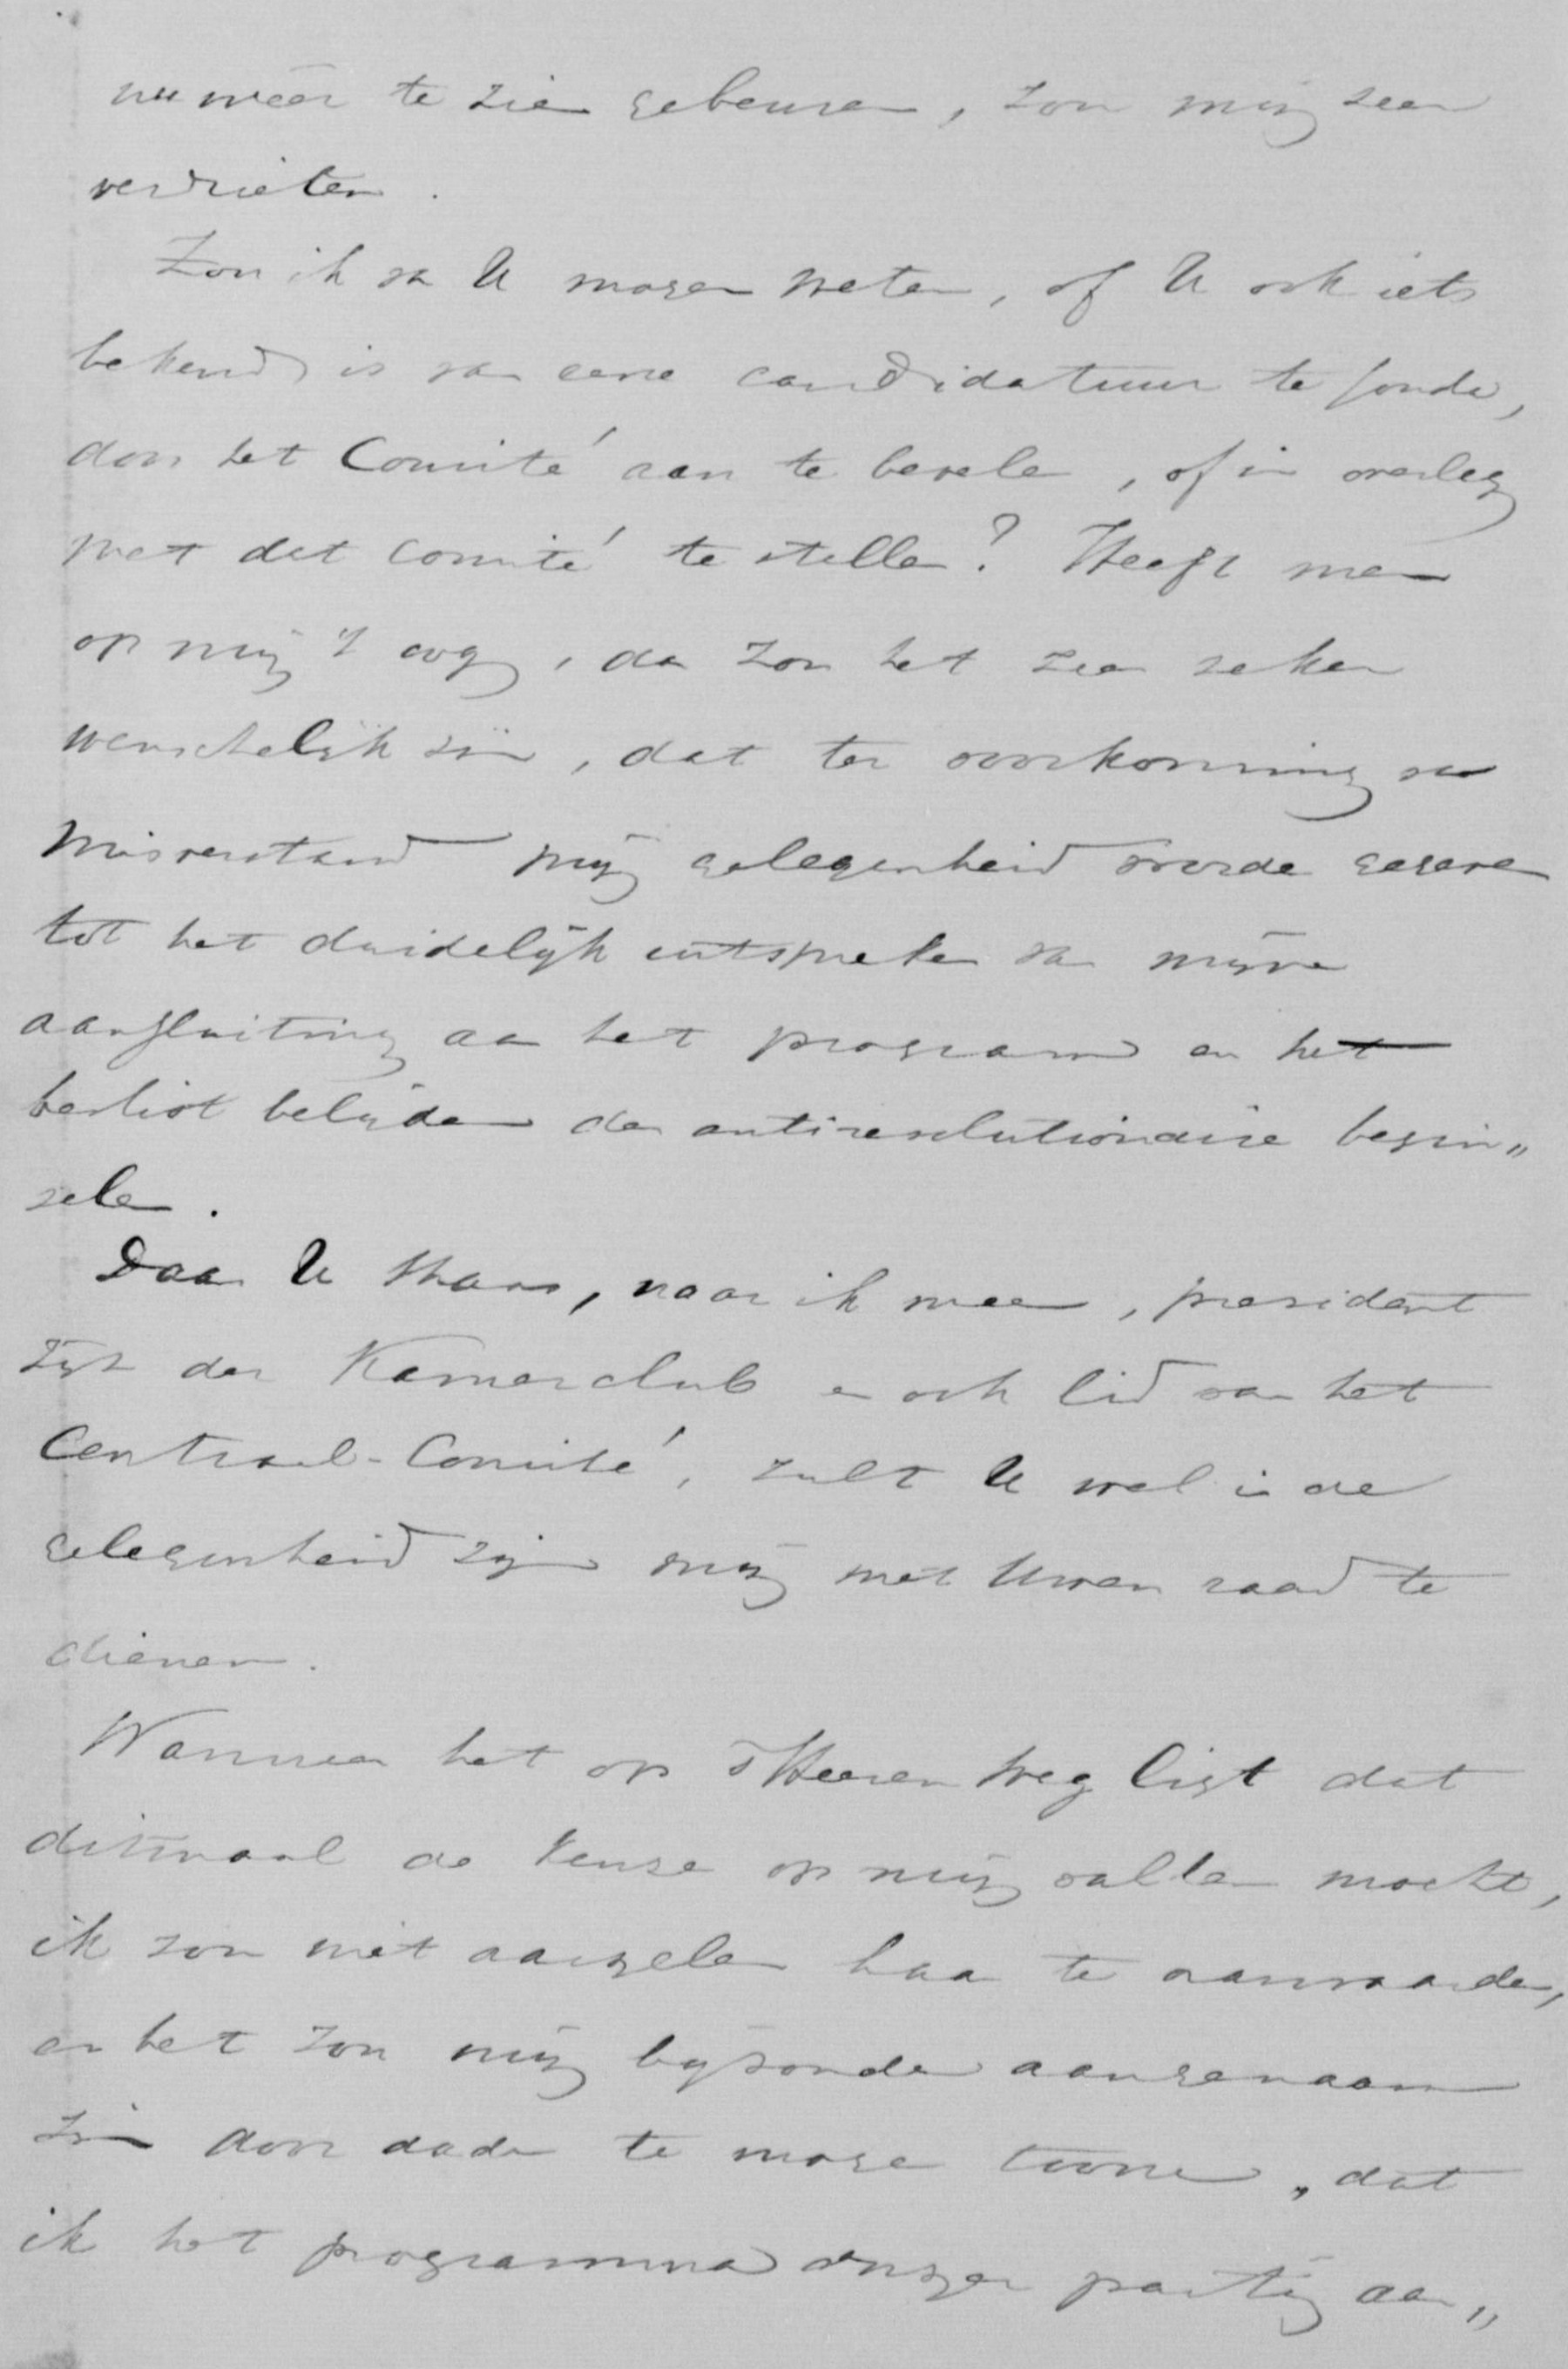 nu weêr te zien gebeuren, zou mij zeer
verdrieten.
Zou ik van U mogen weten, of U ook iets
bekend is van eene candidatuur te Gouda,
door het Comité aan te bevelen, of in overleg
met dat comité te stellen? Heeft men
op mij 't oog, dan zou het zeer zeker
wenschelijk zijn, dat ter voorkoming van
misverstand mij gelegenheid worde gegeven
tot het duidelijk uitspreken van mijne
aansluiting aan het program en het
beslist belijden der antirevolutionaire begin„
selen.
Daar U thans, naar ik meen, president
zijt der Kamerclub en ook lid van het
Centraal-Comité, zult U wel in de
gelegenheid zijn mij met Uwen raad te
dienen.
Wanneer het op 's Heeren weg ligt dat
ditmaal de keuze op mij vallen mocht,
ik zou niet aarzelen haar te aanvaarden,
en het zou mij bijzonder aangenaam
zijn door daden te mogen toonen, dat
ik het programma onzer partij aan„